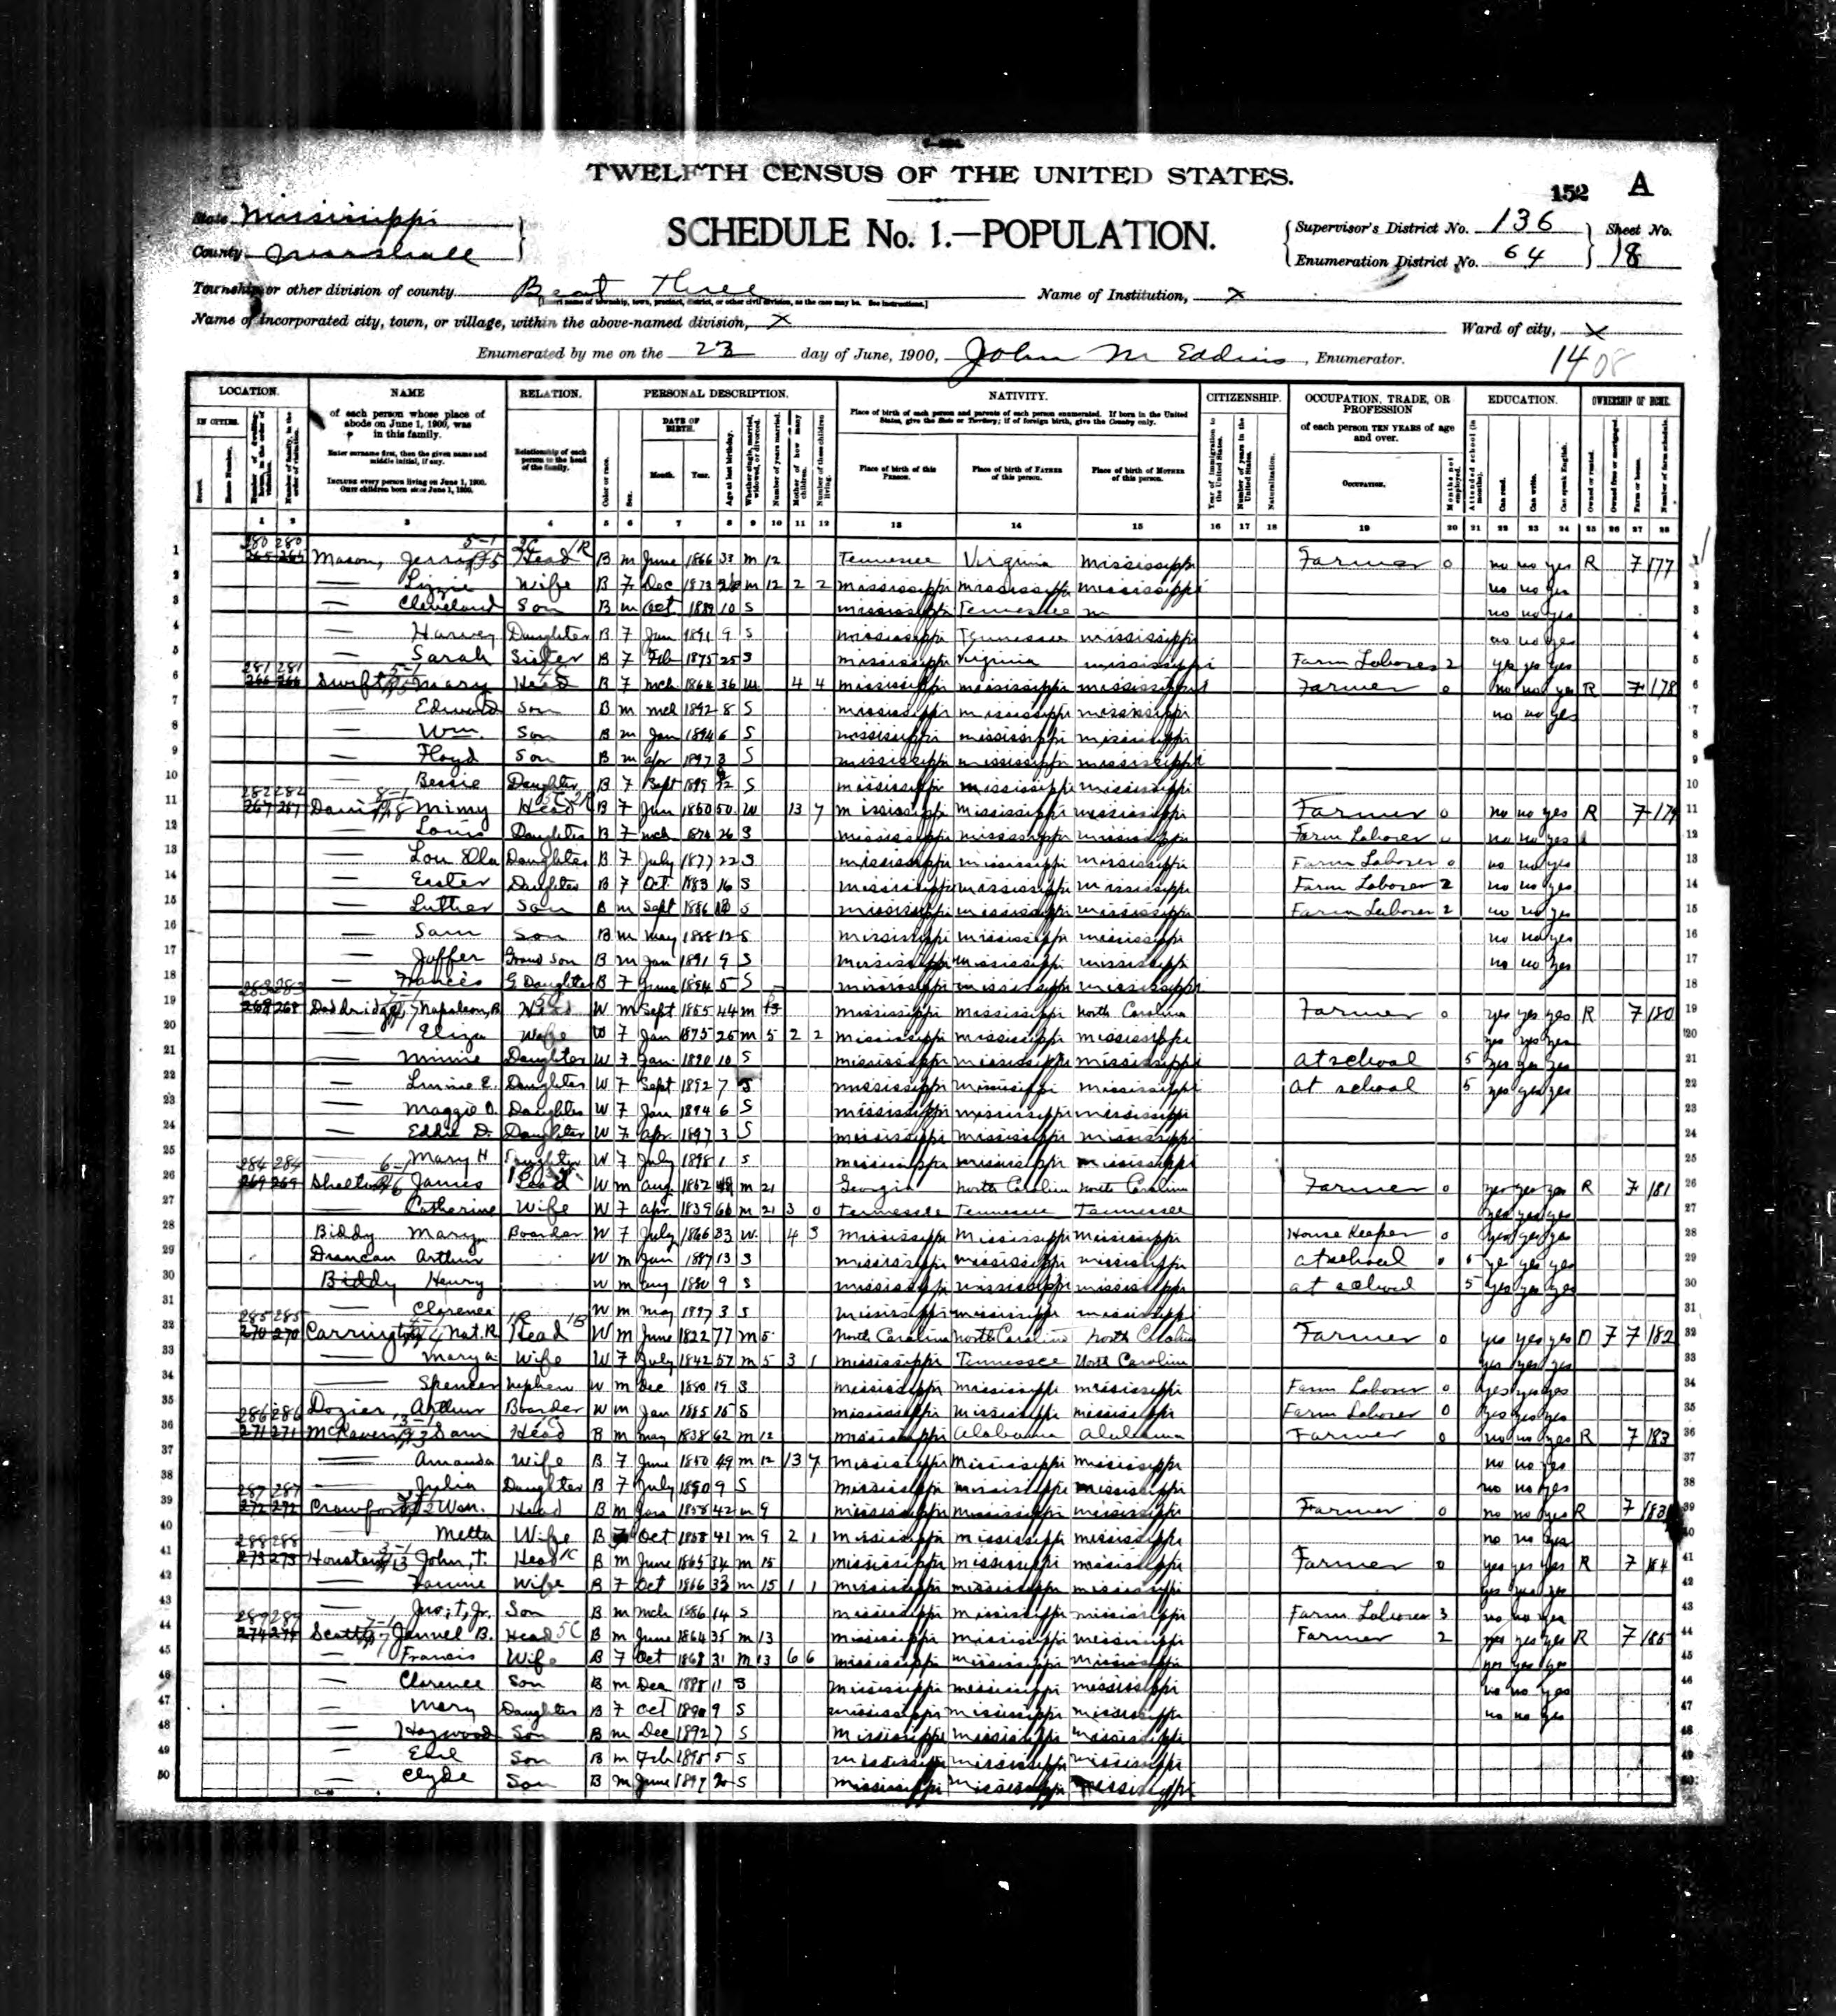 TWELFTH CENSUS OF THE UNITED STATES.
152 A
State Mississippi
County Marshall
SCHEDULE No. 1.—POPULATION.
Supervisor's District No. 136
Enumeration District No. 64
Sheet No. 18
Township or other division of county Beat Three
Name of Institution, X
Name of incorporated city, town, or village, within the above-named division, X
Ward of city, X
Enumerated by me on the 23 day of June, 1900, John M Eddins, Enumerator.
1408
LOCATION. NAME RELATION. PERSONAL DESCRIPTION. NATIVITY. CITIZENSHIP. OCCUPATION, TRADE, OR PROFESSION EDUCATION. OWNERSHIP OF HOME.
IN CITIES. of each person whose place of abode on June 1, 1900, was in this family. Relationship of each person to the head of the family. DATE OF BIRTH. Place of birth of each person and parents of each person enumerated. If born in the United States, give the State or Territory; if of foreign birth, give the Country only. of each person TEN YEARS of age and over.
Enter surname first, then the given name and middle initial, if any.
INCLUDE every person living on June 1, 1900. OMIT children born since June 1, 1900.
Month. Year. Place of birth of this PERSON. Place of birth of FATHER of this person. Place of birth of MOTHER of this person. OCCUPATION.
1 2 3 4 5 6 7 8 9 10 11 12 13 14 15 16 17 18 19 20 21 22 23 24 25 26 27 28
1 280 280 Mason, Head B m June 1866 33 m 12 Tennessee Virginia Mississippi Farmer 0 no no yes R 7 177
2 — Lizzie Wife B 7 Dec m 12 2 2 Mississippi Mississippi Mississippi no no yes
3 — Cleveland Son B m Oct 1889 10 S Mississippi Tennessee m no no yes
4 — Harvey Daughter B 7 Jan 1891 9 S Mississippi Tennessee Mississippi no no yes
5 — Sarah Sister B 7 Feb 1875 25 S Mississippi Virginia Mississippi Farm Laborer 2 yes yes yes
6 281 281 Swift Mary Head B 7 mch 1864 36 W 4 4 Mississippi Mississippi Mississippi Farmer 0 no no yes R 7 178
7 — Edward Son B m mch 1892 8 S Mississippi Mississippi Mississippi no no yes
8 — Wm. Son B m Jan 1894 6 S Mississippi Mississippi Mississippi
9 — Floyd Son B m apr 1897 3 S Mississippi Mississippi Mississippi
10 — Bessie Daughter B 7 Sept 1899 S Mississippi Mississippi Mississippi
11 282 282 Davis Mimy Head B 7 Jan 1850 50 W 13 7 Mississippi Mississippi Mississippi Farmer 0 no no yes R 7 179
12 — Daughter B 7 mch 1874 26 S Mississippi Mississippi Mississippi Farm Laborer no no yes
13 — Lou Ella Daughter B 7 July 1877 22 S Mississippi Mississippi Mississippi Farm Laborer 0 no no yes
14 — Easter Daughter B 7 Oct. 1883 16 S Mississippi Mississippi Mississippi Farm Laborer 2 no no yes
15 — Luther Son B m Sept 1886 S Mississippi Mississippi Mississippi Farm Laborer 2 no no yes
16 — Sam Son B m May 1888 12 S Mississippi Mississippi Mississippi no no yes
17 — Joffer Grand Son B m Jan 1891 9 S Mississippi Mississippi Mississippi no no yes
18 — Francis G Daughter B 7 June 1894 5 S Mississippi Mississippi Mississippi
19 283 283 Doddridge Napoleon B Head W m Sept 1855 44 m Mississippi Mississippi North Carolina Farmer 0 yes yes yes R 7 180
20 — Eliza Wife W 7 Jan 1875 25 m 5 2 2 Mississippi Mississippi Mississippi yes yes yes
21 — Minnie Daughter W 7 Jan 1890 10 S Mississippi Mississippi Mississippi at school 5 yes yes yes
22 — E. Daughter W 7 Sept 1892 7 S Mississippi Mississippi Mississippi at school 5 yes yes yes
23 — Maggie O. Daughter W 7 Jan 1894 6 S Mississippi Mississippi Mississippi
24 — Eddie D. Daughter W 7 apr 1897 3 S Mississippi Mississippi Mississippi
25 — Mary H Daughter W 7 July 1898 1 S Mississippi Mississippi Mississippi
26 284 284 Shelton James Head W m aug 1852 m 21 Georgia North Carolina North Carolina Farmer 0 yes yes yes R 7 181
27 — Catherine Wife W 7 apr 1839 m 21 3 0 Tennessee Tennessee Tennessee yes yes yes
28 Biddy Mary Boarder W 7 July 1866 33 W 4 3 Mississippi Mississippi Mississippi House Keeper 0 yes yes yes
29 Duncan Arthur W m Jan 1887 13 S Mississippi Mississippi Mississippi at school yes yes yes
30 Biddy Henry W m aug 1890 9 S Mississippi Mississippi Mississippi at school 5 yes yes yes
31 — Clarence W m may 1897 3 S Mississippi Mississippi Mississippi
32 285 285 Carrington Nat. R Head W m June 1822 77 m 5 North Carolina North Carolina North Carolina Farmer 0 yes yes yes O 7 7 182
33 — Mary a Wife W 7 July 1842 57 m 5 3 1 Mississippi Tennessee North Carolina yes yes yes
34 — Spencer nephew W m Dec 1880 19 S Mississippi Mississippi Mississippi Farm Laborer 0 yes yes yes
35 Dozier, Arthur Boarder W m Jan 1885 15 S Mississippi Mississippi Mississippi Farm Laborer 0 yes yes yes
36 286 286 McRaven Sam Head B m may 1838 62 m 12 Mississippi Alabama Alabama Farmer 0 no no yes R 7 183
37 — Amanda Wife B 7 June 1850 49 m 12 13 7 Mississippi Mississippi Mississippi no no yes
38 — Julia Daughter B 7 July 1890 9 S Mississippi Mississippi Mississippi no no yes
39 287 287 Crawford Wm. Head B m Jan 1858 42 m 9 Mississippi Mississippi Mississippi Farmer 0 no no yes R 7 183
40 Metta Wife B 7 Oct 1858 41 m 9 2 1 Mississippi Mississippi Mississippi no no yes
41 288 288 Houston John, T. Head B m June 1865 34 m 15 Mississippi Mississippi Mississippi Farmer 0 yes yes yes R 7 184
42 — Fannie Wife B 7 Oct 1866 33 m 15 1 1 Mississippi Mississippi Mississippi yes yes yes
43 — Jno, T, Jr. Son B m mch 1886 14 S Mississippi Mississippi Mississippi Farm Laborer 3 no no yes
44 289 289 B. Head B m June 1864 35 m 13 Mississippi Mississippi Mississippi Farmer 2 yes yes yes R 7 185
45 — Francis Wife B 7 Oct 1868 31 m 13 6 6 Mississippi Mississippi Mississippi yes yes yes
46 — Clarence Son B m Dec 1888 11 S Mississippi Mississippi Mississippi no no yes
47 — Mary Daughter B 7 Oct 1890 9 S Mississippi Mississippi Mississippi no no yes
48 — Haywood Son B m Dec 1892 7 S Mississippi Mississippi Mississippi
49 — Son B m Feb 1895 5 S Mississippi Mississippi Mississippi
50 — Clyde Son B m June 1897 2 S Mississippi Mississippi Mississippi